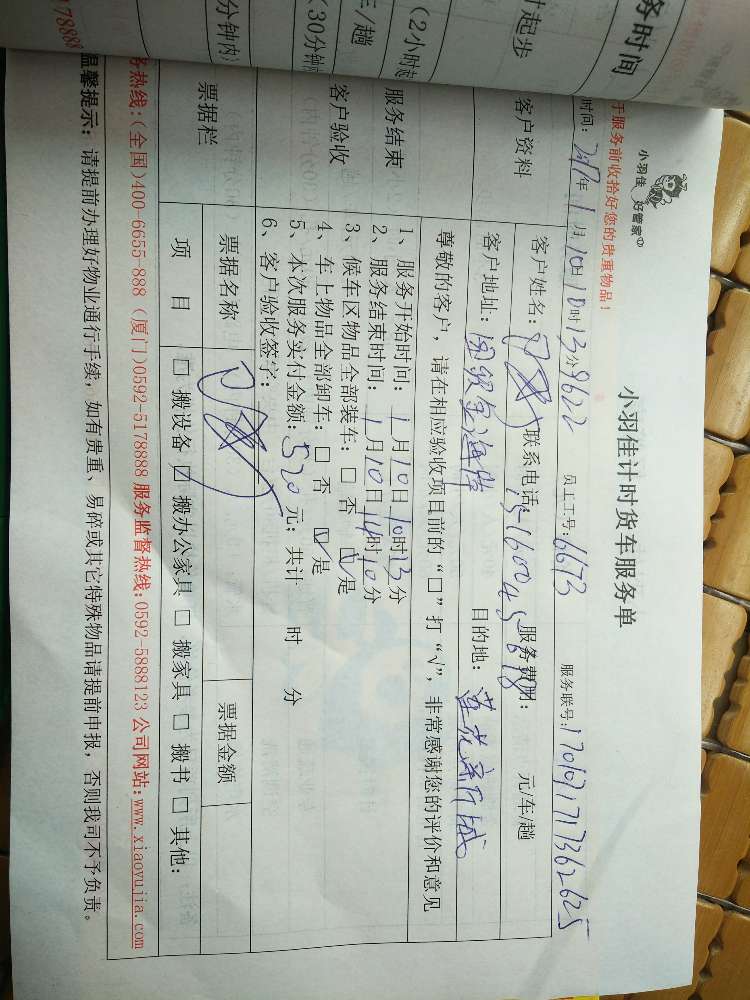 小羽佳 好管家
小羽佳计时货车服务单
于服务前收拾好您的贵重物品！
时间：2017年1月10日10时13分 9622 员工工号：6673 服务联号：
客户资料
客户姓名： 联系电话： 服务费用： 元/车/趟
客户地址：国贸金海岸 目的地：莲花新城
尊敬的客户，请在相应验收项目前的“□”打“√”，非常感谢您的评价和意见
服务结束
客户验收
1、服务开始时间：1月10日10时13分
2、服务结束时间：1月10日14时10分
3、候车区物品全部装车：□ 否 ☑ 是
4、车上物品全部卸车：□ 否 ☑ 是
5、本次服务实付金额：520元；共计 时 分
6、客户验收签字：
票据栏
票据名称 票据金额
项 目 □ 搬设备 ☑ 搬办公家具 □ 搬家具 □ 搬书 □ 其他:
务热线:(全国)400-6655-888 (厦门)0592-5178888 服务监督热线:0592-5888123 公司网站:www.xiaoyujia.com
温馨提示：请提前办理好物业通行手续，如有贵重、易碎或其它特殊物品请提前申报，否则我司不予负责。
务时间
时起步
(2小时起
车/趟
(30分钟
分钟内)
178888